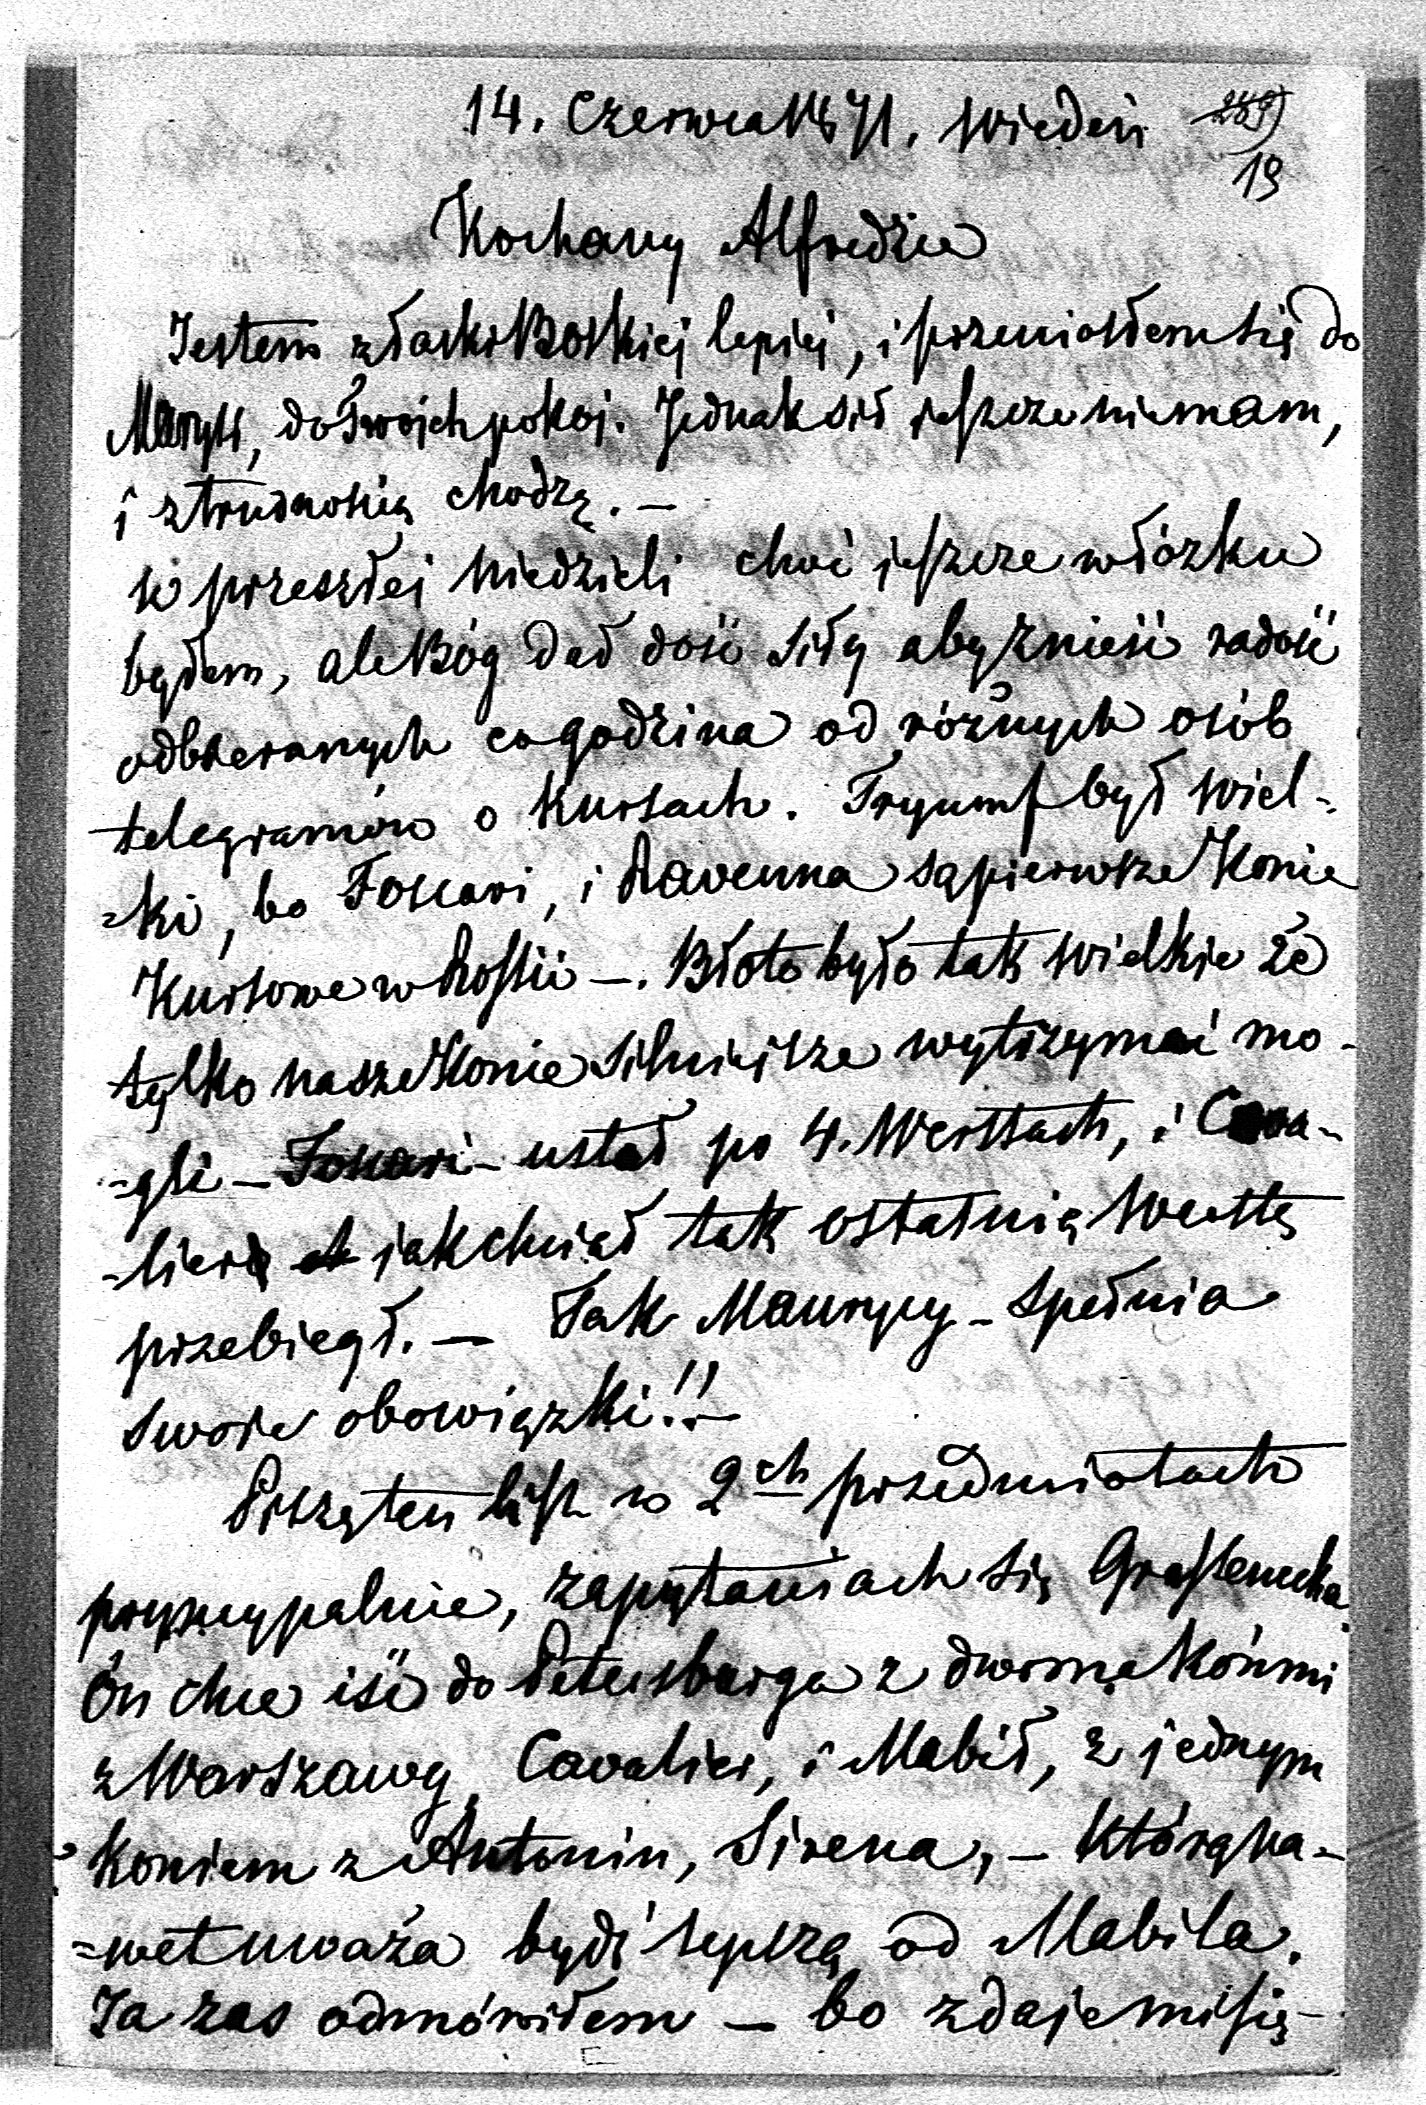 14. Czerwca 1871. Wiedeń 289)
19
Kochany Alfredzie
Jestem z łaski Boskiej lepiej, i przeniosłem się do
Maryli, do Twoich pokoj. Jednak sił jeszcze nie mam,
i z trudnością chodzę. —
W przeszłej Niedzieli choć jeszcze w łózku
byłem, ale Bóg dał dość siły aby znieść radość
odbieranych co godzina od różnych osób
telegramów o Kursach. Tryumf był wiel-
-ki, bo Foscari, i Ravenna są pierwsze Konie
Kursowe w Rossii —. Błoto było tak wielkie że
tylko nasze Konie silniejsze wytrzymać mo-
-gli — Foscari — ustał po 4. Werstach, i Cava-
-lier jak chciał tak ostatnią Werstę
przebiegł. — Tak Maurycy — spełnia
swoie obowiązki!! —
Piszę ten list w 2ch przedmiotach
pryncypalnie, zapytaniach się
On chce iść do Petersburga z dwoma Końmi
z Warszawy Cavalier, i Mabil, z jednym
Koniem z Antonin, Sirena, — którą na-
-wet uważa bydź lepszą od Mabila.
Ja zas odmówiłem — bo zdaje mi się —